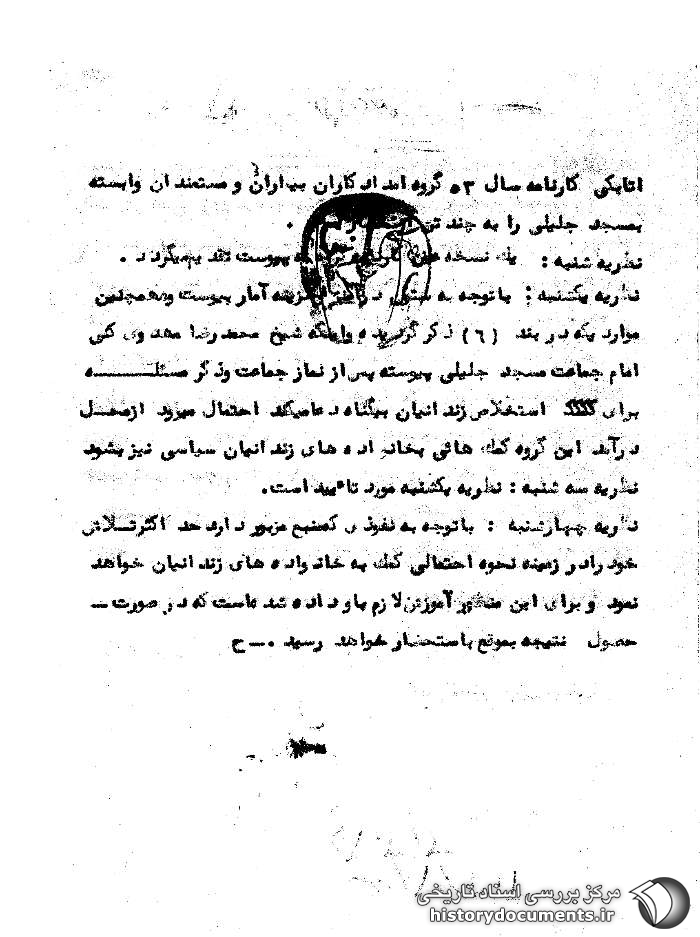 اتابکی کارنامه سال ۵۳ گروه امدادکاران بیماران و مستمندان وابسته
بمسجد جلیلی را به چند تن از
نظریه شنبه : یک نسخه به پیوست تقدیم میگردد .
نظریه یکشنبه : باتوجه به هزینه آمار پیوست وهمچنین
مواردیکه در بند (٦) ذکر گردیده واینکه شیخ محمدرضا مهدوی کنی
امام جماعت مسجد جلیلی پیوسته پس از نماز جماعت وذکر مسئلـــــه
برای استخلاص زندانیان بیگناه دعامیکند احتمال میرود ازمحل
درآمد این گروه کمک هائی بخانواده های زندانیان سیاسی نیز بشود
نظریه سه شنبه : نظریه یکشنبه مورد تائید است.
نظریه چهارشنبه : باتوجه به نفوذی که منبع مزبور دارد حد اکثر تــلاش
خود رادر زمینه نحوه احتمالی کمک به خانواده های زندانیان خواهد
نمود و برای این منظور آموزش لازم باو داده شده است که در صورت ـ
حصول نتیجه بموقع باستحضار خواهد رسید . ـ ح
مرکز بررسی اسناد تاریخی
historydocuments.ir